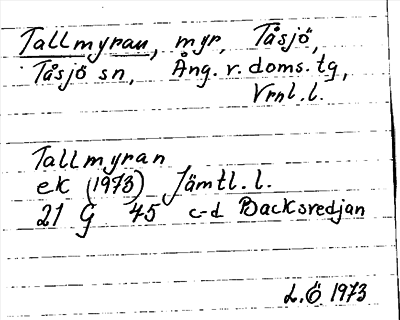 Tallmyran, myr, Tåsjö,
Tåsjö sn, Ång. v. doms. tg,
Vrnl. l.
Tallmyran
ek (1973) Jämtl. l.
21 G 45 c-d Backsredjan
L.Ö 1973